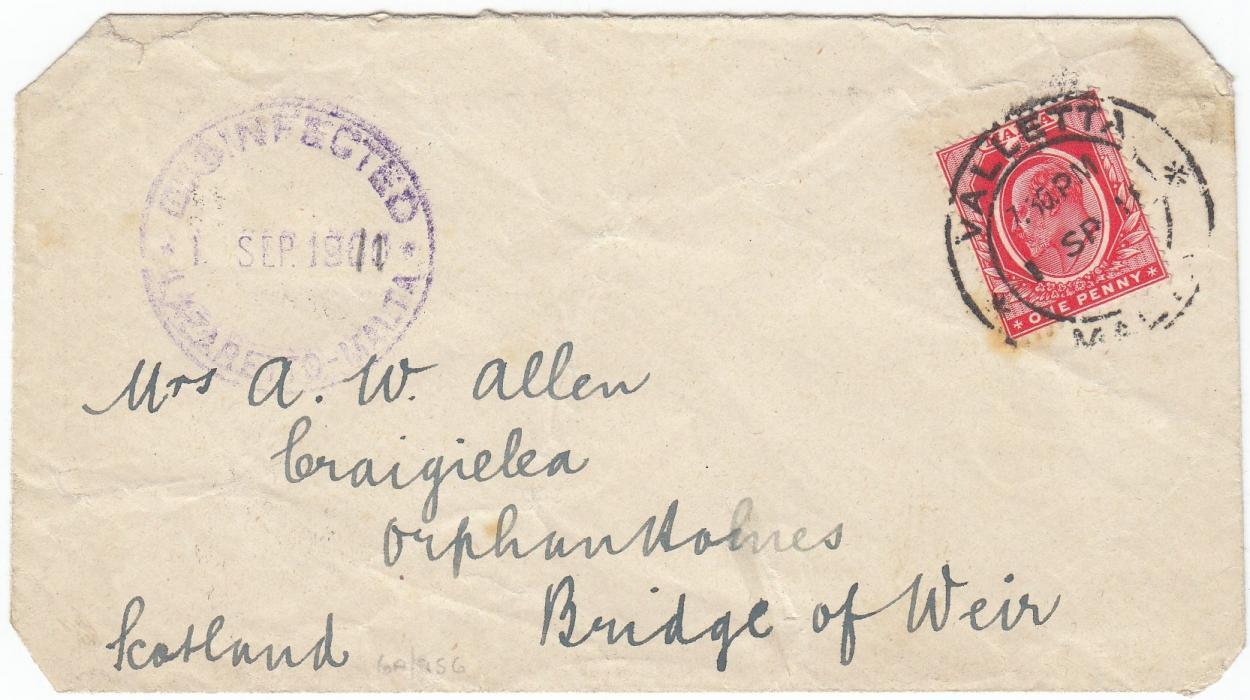 DISINFECTED
1 SEP. 1900 11
LAZARETTO-MALTA
VALLETTA
7.10.PM
SP 11
MALTA
MALTA
ONE PENNY
Mrs A. W. Allen
Craigielea
Orphan Homes
Bridge of Weir
Scotland